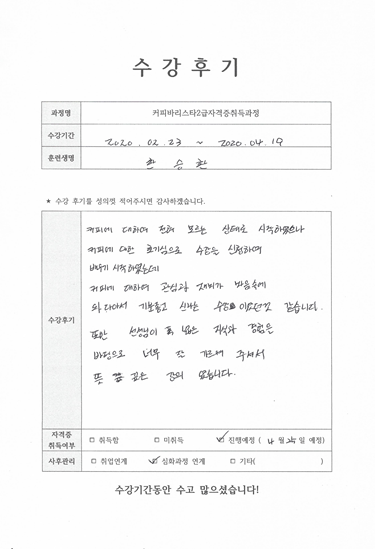 수강후기
과정명 커피바리스타2급자격증취득과정
수강기간 2020. 02. 23 ~ 2020. 04. 19
훈련생명 한승환
★ 수강 후기를 성의껏 적어주시면 감사하겠습니다.
수강후기
커피에 대하여 전혀 모르는 상태로 시작하였으나
커피에 대한 호기심으로 수강을 신청하여
배우기 시작하였는데
커피에 대하여 관심과 재미가 마음속에
와 다아서 기분좋고 신나는 수업이었던것 같습니다.
또한 선생님이 넓은 지식과 경험을
바탕으로 너무 잘 가르쳐 주셔서
뜻 깊은 강의 였습니다.
자격증 취득여부 □ 취득함 □ 미취득 ☑ 진행예정 ( 4월 25일 예정)
사후관리 □ 취업연계 ☑ 심화과정 연계 □ 기타( )
수강기간동안 수고 많으셨습니다!